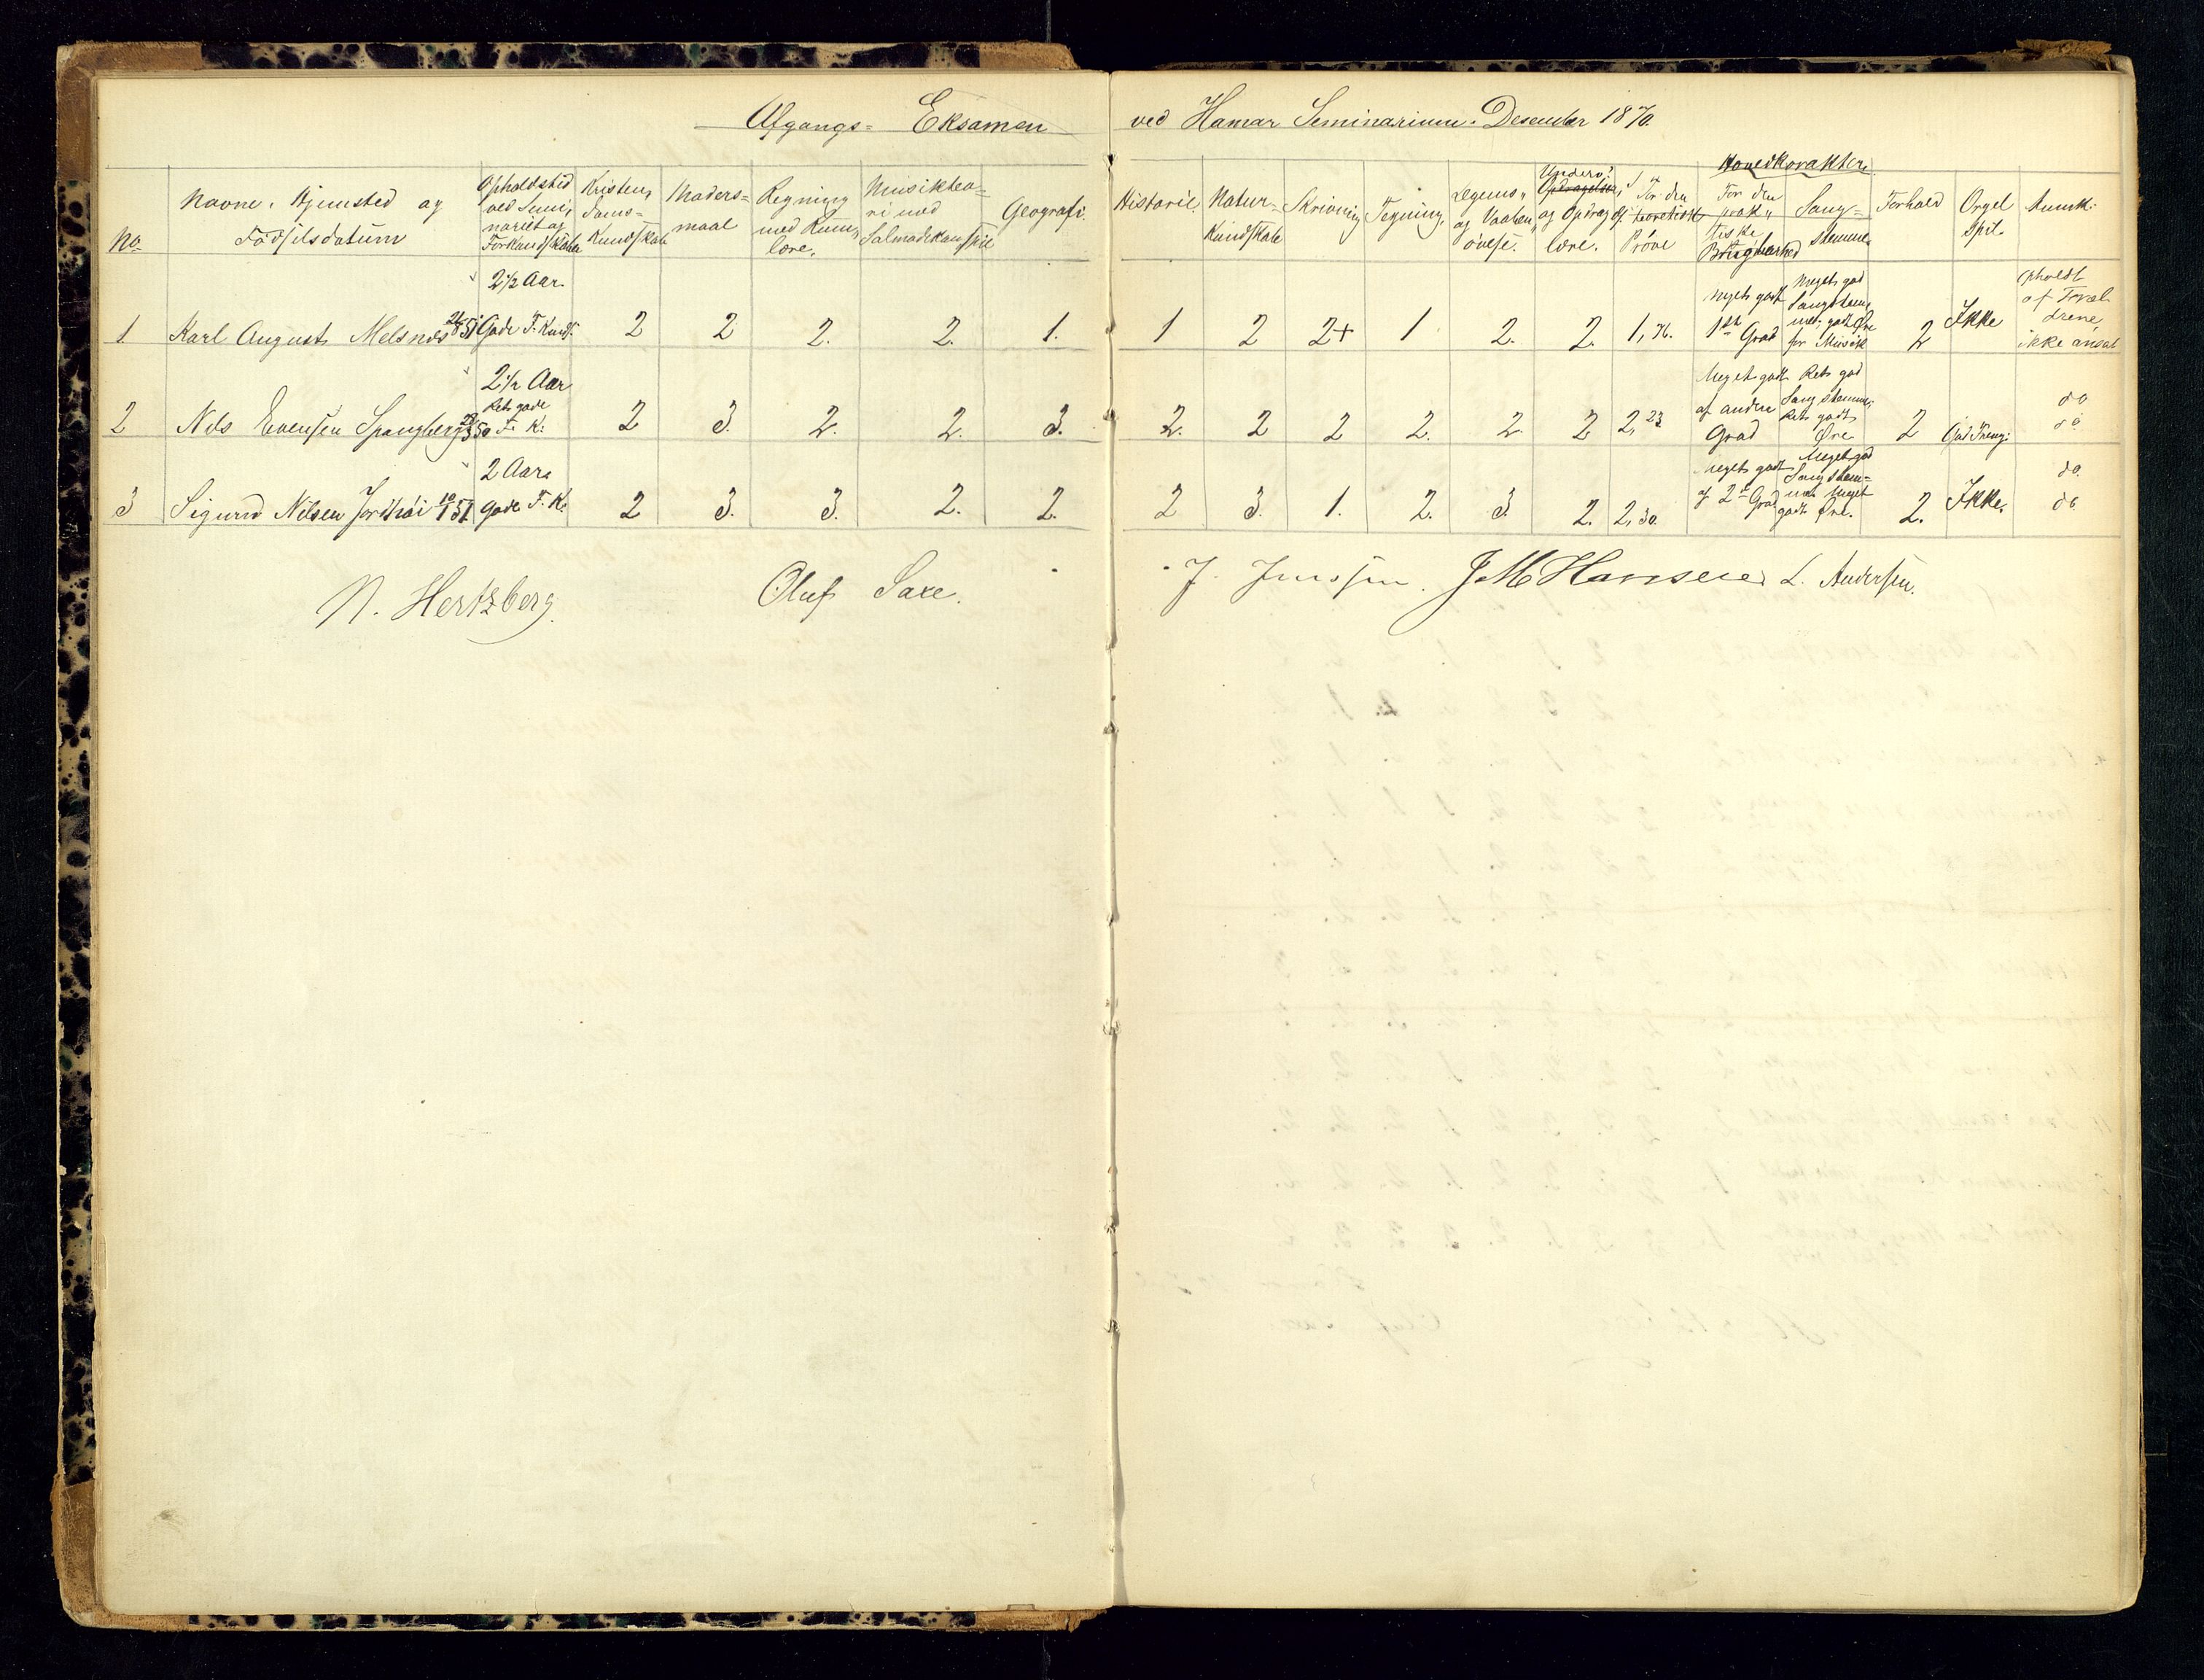 Afgangs- Eksamen ved Hamar Seminarium. Desember 1870.
No. Navne, Hjemsted og Fødselsdatum
Opholdstid ved Seminariet og Forkundskaber
Kristendomskundskab
Modersmaal
Regning med Rumlære.
Musikteori med Salmodikonspil
Geografi.
Historie.
Naturkundskab
Skrivning
Tegning.
Legems- og Vaabenøvelse.
Underv. og Opdrag. lære.
Hovedkarakter
For den teoretiske Prøve
For den praktiske Brugbarhed
Sangstemme
Forhold
Orgel Spil.
Anmk.
1 Karl August Melsnes 51 2½ Aar. Gode F. Kunds. 2 2 2. 2. 1. 1 2 2+ 1 2. 2. 1, Meget godt 1ste Grad Meget god Sangstemme, godt Øre for Musik 2 Ikke Opholdt af Forældrene, ikke ansat
2 Nils Evensen Spangberg 50 2½ Aar Ret gode F. K. 2 3. 2. 2. 3. 2. 2 2 2. 2. 2 2,23 Meget godt af anden Grad Ret god Sangstemme, Ret godt Øre 2 do do
3 Sigurd Nilsen Jordhøi 51 2 Aar. Gode F. K. 2 3. 3. 2. 2. 2 3. 1. 2. 3. 2. 2,30. Meget godt af 2den Grad Meget god Sangstemme meget godt Øre. 2. Ikke. do. do.
N. Hertzberg. Oluf Saxe. J. Jenssen. J M Hansen L. Andersen.